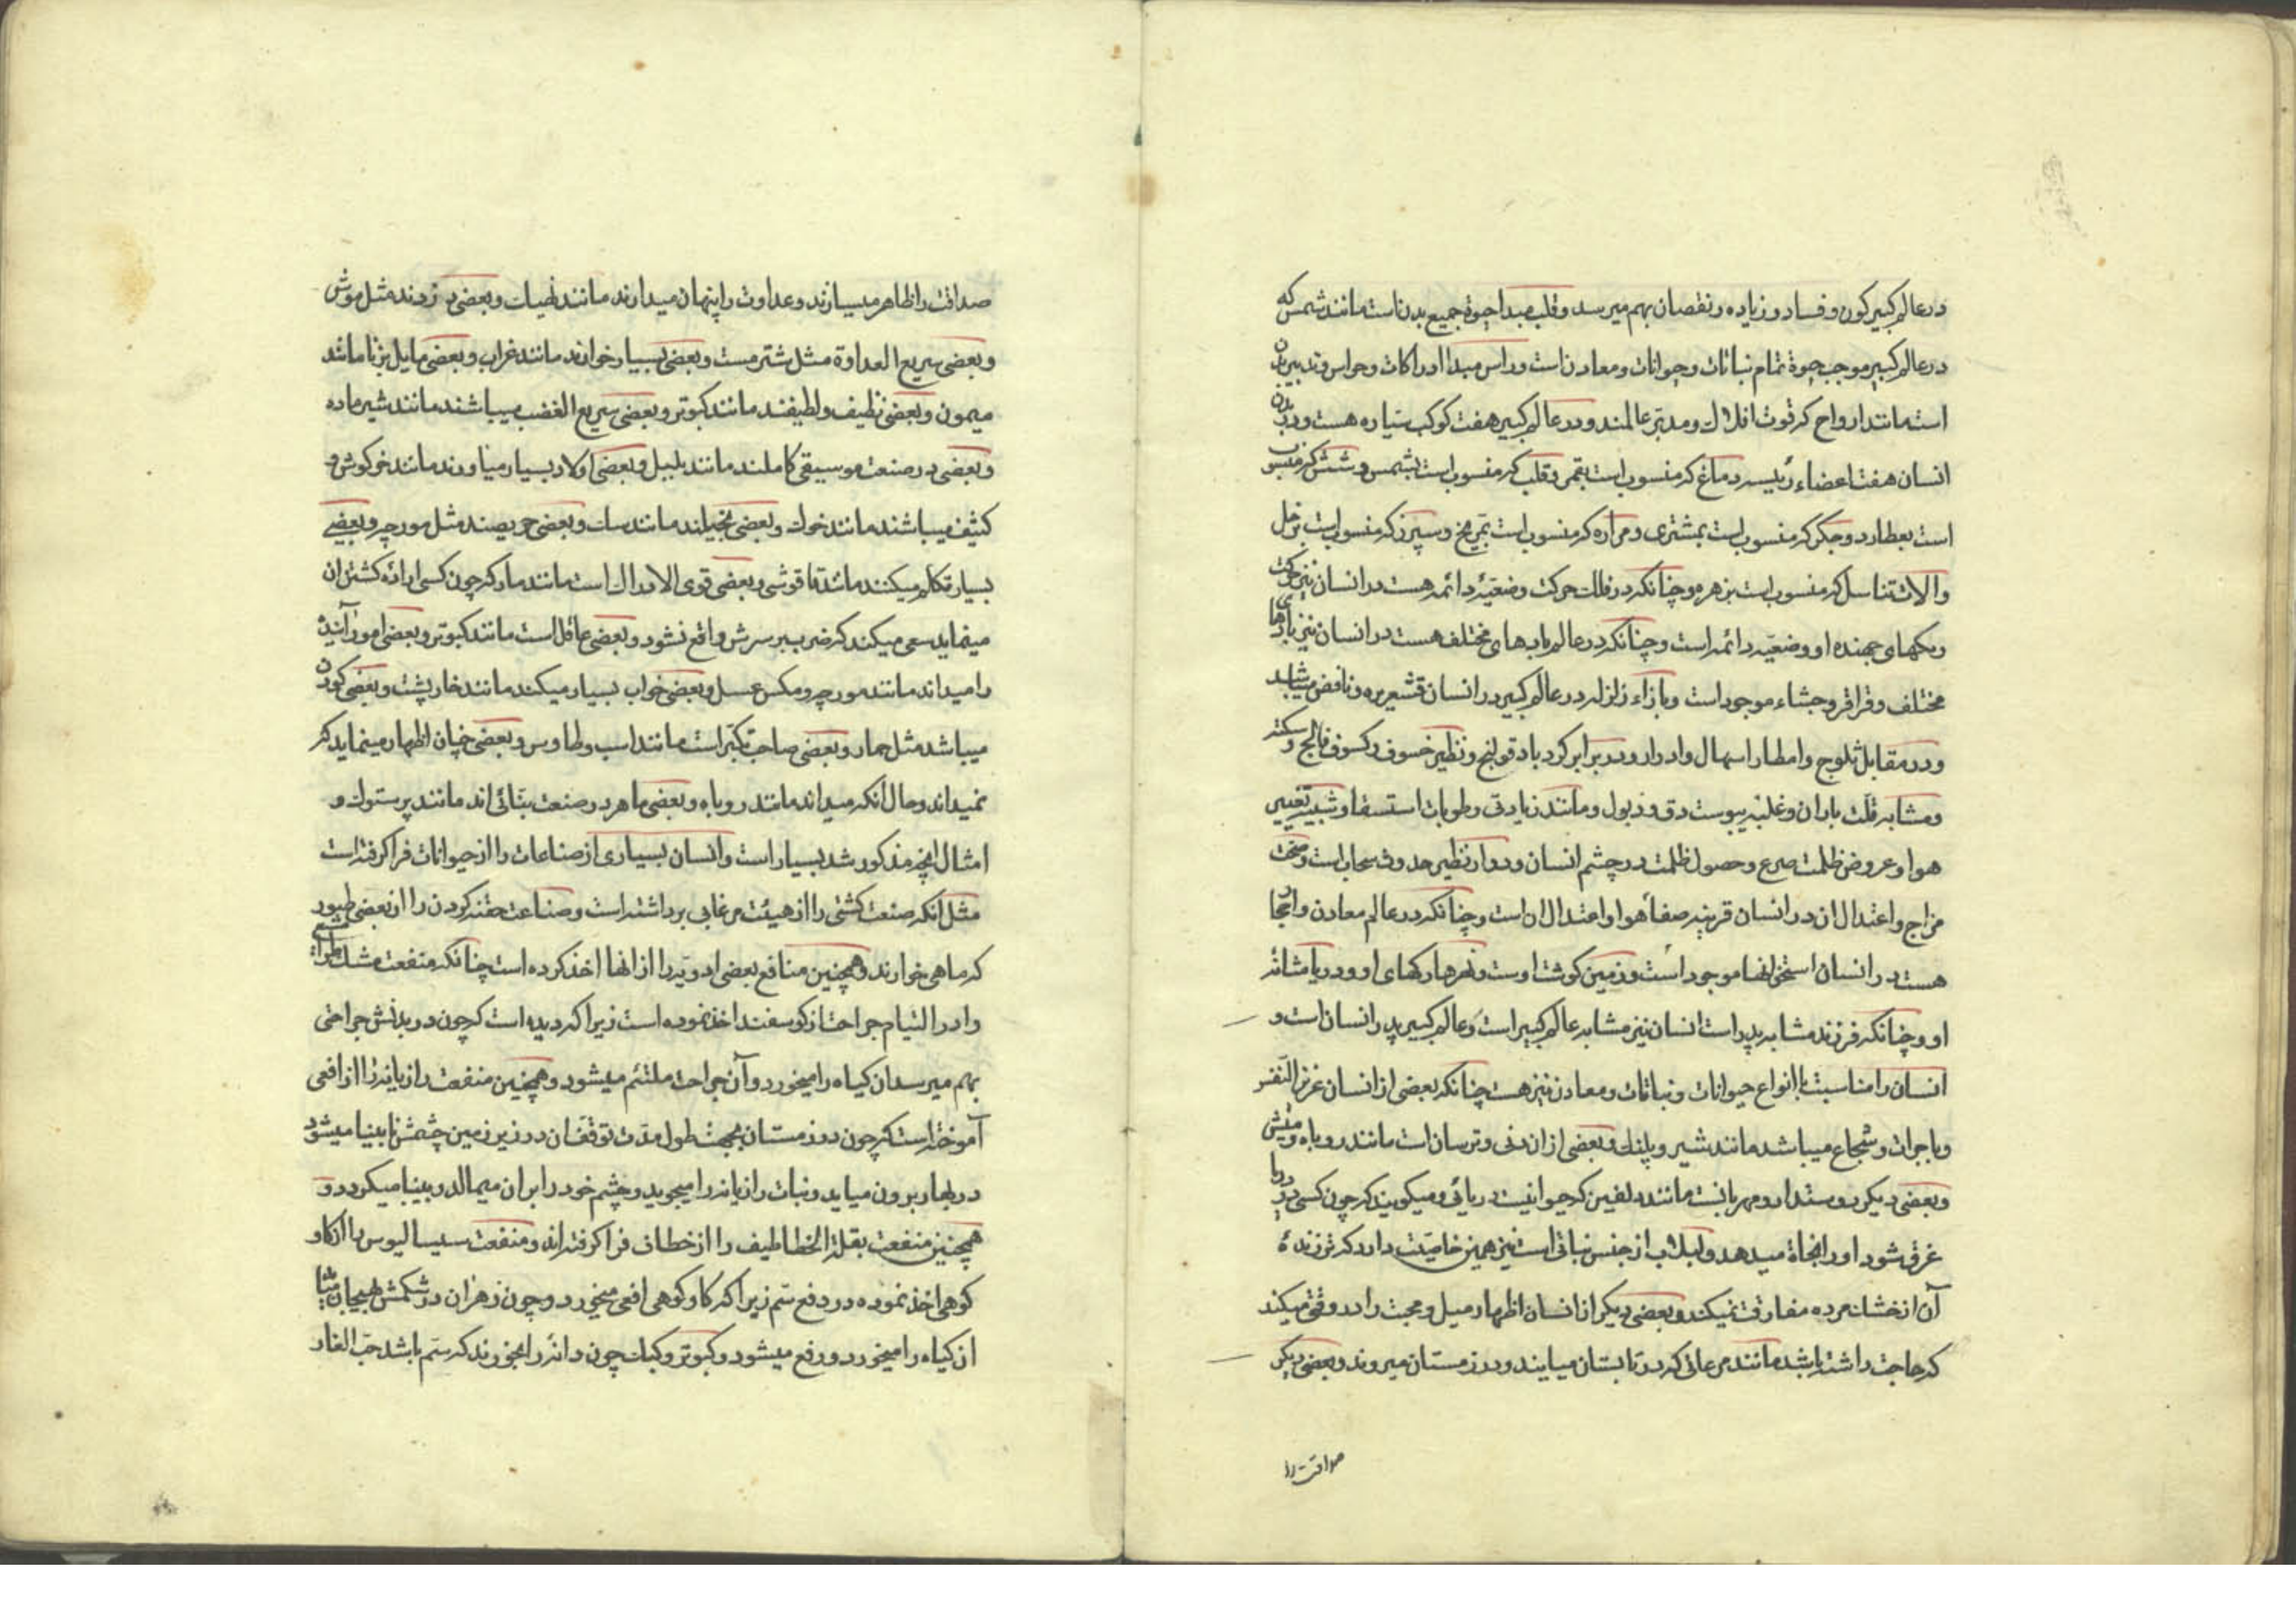 در عالم کبیر کون و فساد و زیاده و نقصان بهم میرسد و قلب مبدا حیوة جمیع بدن است مانند شمس که
در عالم کبیر موجب حیوة تمام نباتات و حیوانات و معادن است و راس مبدا ادراکات و حواس و تدبیر بدن
است مانند ارواح که قوت افلاک و مدبر عالمند و در عالم کبیر هفت کوکب سیاره هست و در بدن
انسان هفت اعضاء رئیسه دماغ که منسوب است بقمر و قلب که منسوب است بشمس و شش که منسوب
است بعطارد و جکر که منسوب است بمشتری و مراره که منسوب است بمریخ و سپرز که منسوب است بزحل
و الات تناسل که منسوب است بزهره و چنانکه در فلک حرکت وضعیهٔ دائمه هست در انسان نیز حرکت
رکهای جهنده او وضعیه دائمه است و چنانکه در عالم بادهای مختلف هست در انسان نیز بادهای
مختلف و قراقر و جشاء موجود است و بازاء زلزله در عالم کبیر در انسان قشعریره و نافض میباشد
و در مقابل ثلوج و امطار اسهال و ادرار و در برابر کردباد قولنج و نظیر خسوف و کسوف فالج و سکته
و مشابه قلت باران و غلبهٔ یبوست دق و ذبول و مانند زیادتی رطوبات استسقا و شبیه تغییر
هوا و عروض ظلمت صرع و حصول ظلمت در چشم انسان و دوار نظیر حدوث سحاب است و صحت
مزاج و اعتدال ان در انسان قرینهٔ صفاء هوا و اعتدال ان است و چنانکه در عالم معادن و احجار
هست در انسان استخوانها موجود است و زمین کوشت اوست و نهرها رکهای او و دریا مثانه
او و چنانکه فرزند مشابه پدر است انسان نیز مشابه عالم کبیر است و عالم کبیر پدر انسان است و
انسان را مناسبت با انواع حیوانات و نباتات و معادن نیز هست چنانکه بعضی از انسان عزیز النفس
و با جرات و شجاع میباشد مانند شیر و پلنک و بعضی از ان دنی و ترسان است مانند روباه و
و بعضی دیکر دوستدار و مهربانست مانند دلفین که حیوانیست دریائی و میکویند که چون کسی در دریا
غرق شود او را نجاة میدهد و لبلاب از جنس نباتی است نیز همین خاصیت دارد که تر زندهٔ
آن از خشک مرده مفارقت نمیکند و بعضی دیکر از انسان اظهار میل و محبت را در وقتی میکند
که حاجت داشته باشد مانند مرغانی که در تابستان میایند و در زمستان میروند و بعضی دیکر
صداقت را
صداقت را ظاهر میسازند و عداوت را پنهان میدارند مانند و بعضی دزدند مثل موش
و بعضی سریع العداوة مثل شتر مست و بعضی بسیار خوانند مانند غراب و بعضی مایل بزنا مانند
میمون و بعضی نظیف و لطیفند مانند کبوتر و بعضی سریع الغضب میباشند مانند شیر ماده
و بعضی در صنعت موسیقی کاملند مانند بلبل و بعضی اولاد بسیار میاورند مانند خرکوش و
کثیف میباشند مانند خوک و بعضی بخیلند مانند سک و بعضی حریصند مثل مورچه و بعضی
بسیار تکلم میکنند مانند و بعضی قوی الادراک است مانند مار که چون کسی اراده کشتن ان
مینماید سعی میکند که ضرب بر سرش واقع نشود و بعضی عاقل است مانند کبوتر و بعضی امور آینده
را میداند مانند مورچه و مکس عسل و بعضی خواب بسیار میکند مانند خارپشت و بعضی کودن
میباشد مثل حمار و بعضی صاحب تکبر است مانند اسب و طاوس و بعضی چنان اظهار مینماید که
نمیداند و حال آنکه میداند مانند روباه و بعضی ماهر در صنعت بنائی اند مانند پرستوک و
امثال انچه مذکور شد بسیار است و انسان بسیاری از صناعات را از حیوانات فرا کرفته است
مثل آنکه صنعت کشتی را از هیئت مرغابی برداشته است و صناعت حقنه کردن را از بعضی طیور
که ماهی خوارند و همچنین منافع بعضی ادویه را از انها اخذ کرده است چنانکه منفعت
را در التیام جراحت از کوسفند اخذ نموده است زیرا که دیده است که چون در بدنش جراحتی
بهم میرسد ان کیاه را میخورد و آن جراحت ملتئم میشود و همچنین منفعت رازیانه را از افعی
آموخته است که چون در زمستان بجهت طول مدت توقفان در زیر زمین چشمش نابینا میشود
در بهار برون میاید و نبات رازیانه را میجوید و چشم خود را بران میمالد و بینا میکردد و
همچنین منفعت بقلة الخطاطیف را از خطاف فرا کرفته اند و منفعت سیسالیوس را از کاو
کوهی اخذ نموده در دفع سم زیرا که کاو کوهی افعی میخورد و چون زهر ان در شکمش هیجان
ان کیاه را میخورد و رفع میشود و کبوتر و کبک چون دانه را میخورند که سم باشد حب الغار